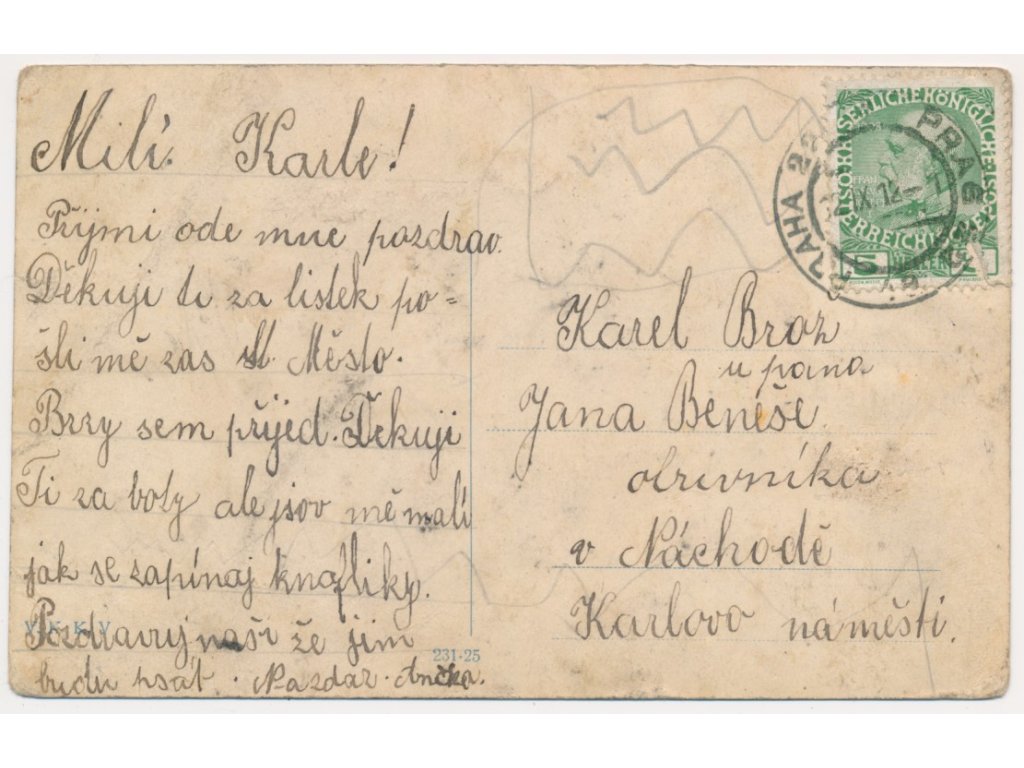 Milí. Karle!
Přijmi ode mne pozdrav.
Děkuji ti za lístek po-
šli mě zas st. Město.
Brzy sem přijed. Děkuji
Ti za boty ale jsou mě malí
jak se zapínaj knoflíky.
Pozdravuj naši že jim
budu psát. Nazdar. Ančka.
V. K. K. V.
231·25
PRAHA 22 PRAG
IX. 12
KAISERLICHE KÖNIGLICHE
ÖSTERREICHISCHE
5 HELLER
Karel Brož
u pana
Jana Beneše.
obuvníka
v Náchodě
Karlovo náměstí.